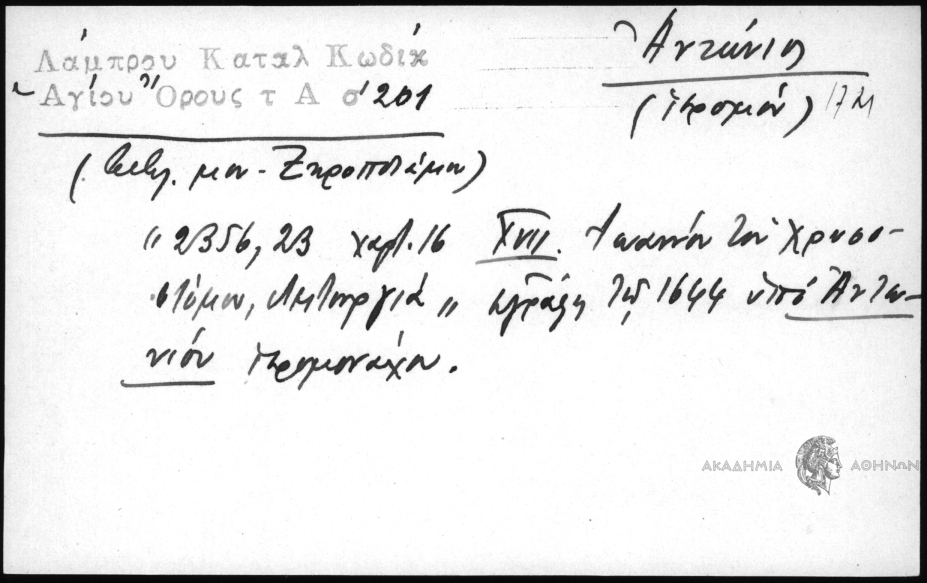 Λάμπρου Καταλ Κωδίκ
Αγίου Όρους τ Α σ 201
Αντώνιος
(ἱερομόν) 17 
(Βιβλ. μον. Ξηροποτάμου)
"2356, 23 χαρτ. 16 XVII. Ἰωάννου τοῦ Χρυσο-
στόμου, Λειτουργία" ἐγράφη τῷ 1644 ὑπό Ἀντω-
νίου ἱερομονάχου.
ΑΚΑΔΗΜΙΑ ΑΘΗΝΩΝ